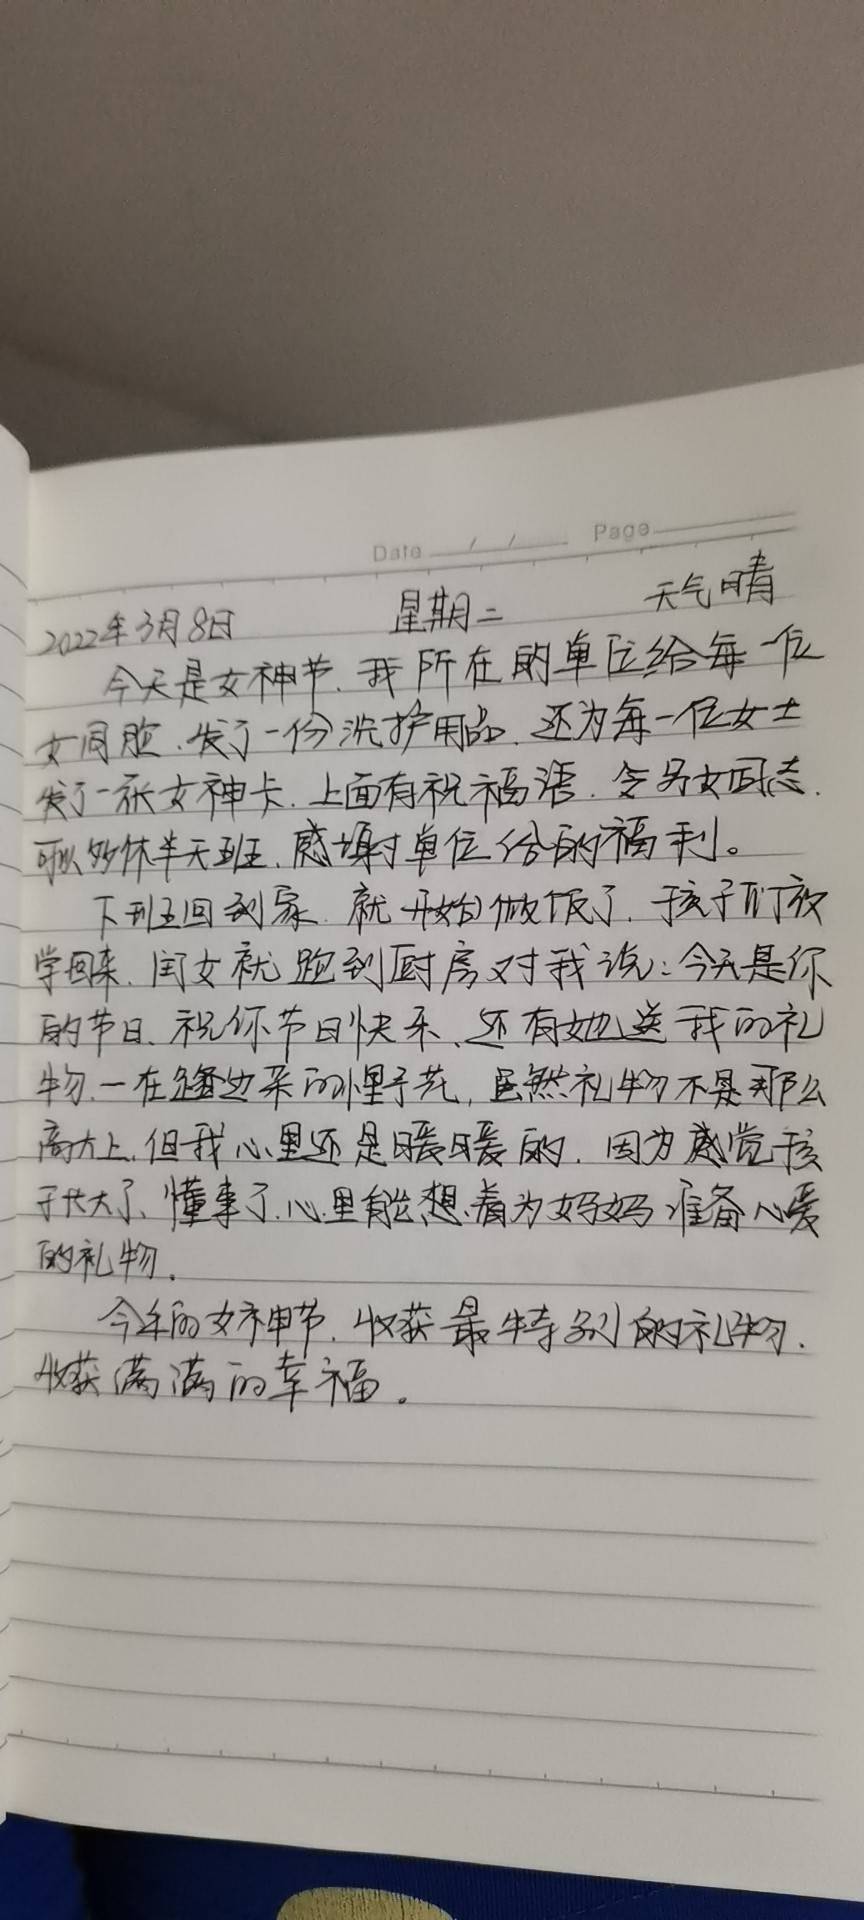 Date / / Page
2022年3月8日 星期二 天气晴
今天是女神节、我所在的单位给每一位
女同胞、发了一份洗护用品、还为每一位女士
发了一张女神卡、上面有祝福语、令另女同志、
可以多休半天班、感谢单位给的福利。
下班回到家、就开始做饭了、孩子们放
学回来、闺女就跑到厨房对我说：今天是你
的节日、祝你节日快乐、还有她送我的礼
物、一在路边采的小野花, 虽然礼物不是那么
高大上、但我心里还是暖暖的、因为感觉孩
子长大了、懂事了、心里能想着为妈妈准备心爱
的礼物.
今年的女神节、收获最特别的礼物.
收获满满的幸福。